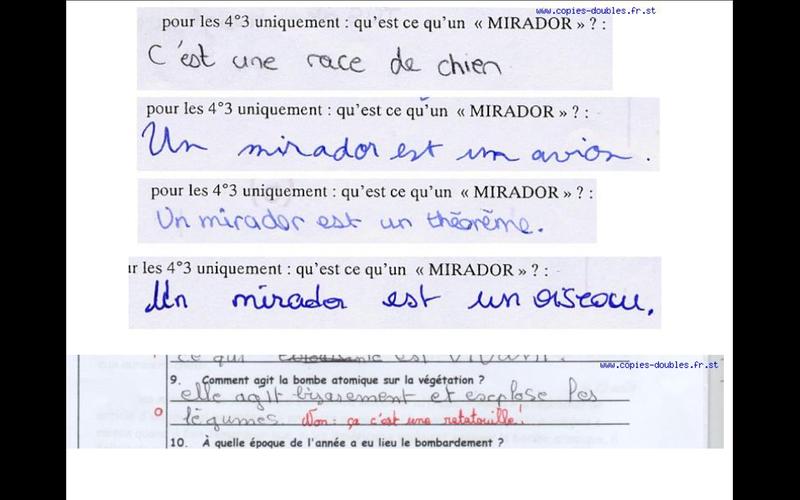 www.copies-doubles.fr.st
pour les 4°3 uniquement : qu'est ce qu'un « MIRADOR » ? :
C'est une race de chien
pour les 4°3 uniquement : qu'est ce qu'un « MIRADOR » ? :
Un mirador est un avion.
pour les 4°3 uniquement : qu'est ce qu'un « MIRADOR » ? :
Un mirador est un théorème.
ur les 4°3 uniquement : qu'est ce qu'un « MIRADOR » ? :
Un mirador est un oiseau.
ce qui est vivant.
www.copies-doubles.fr.st
9. Comment agit la bombe atomique sur la végétation ?
elle agit bisarement et esxplose les
légumes. Non : ça c'est une ratatouille !
0
10. À quelle époque de l'année a eu lieu le bombardement ?